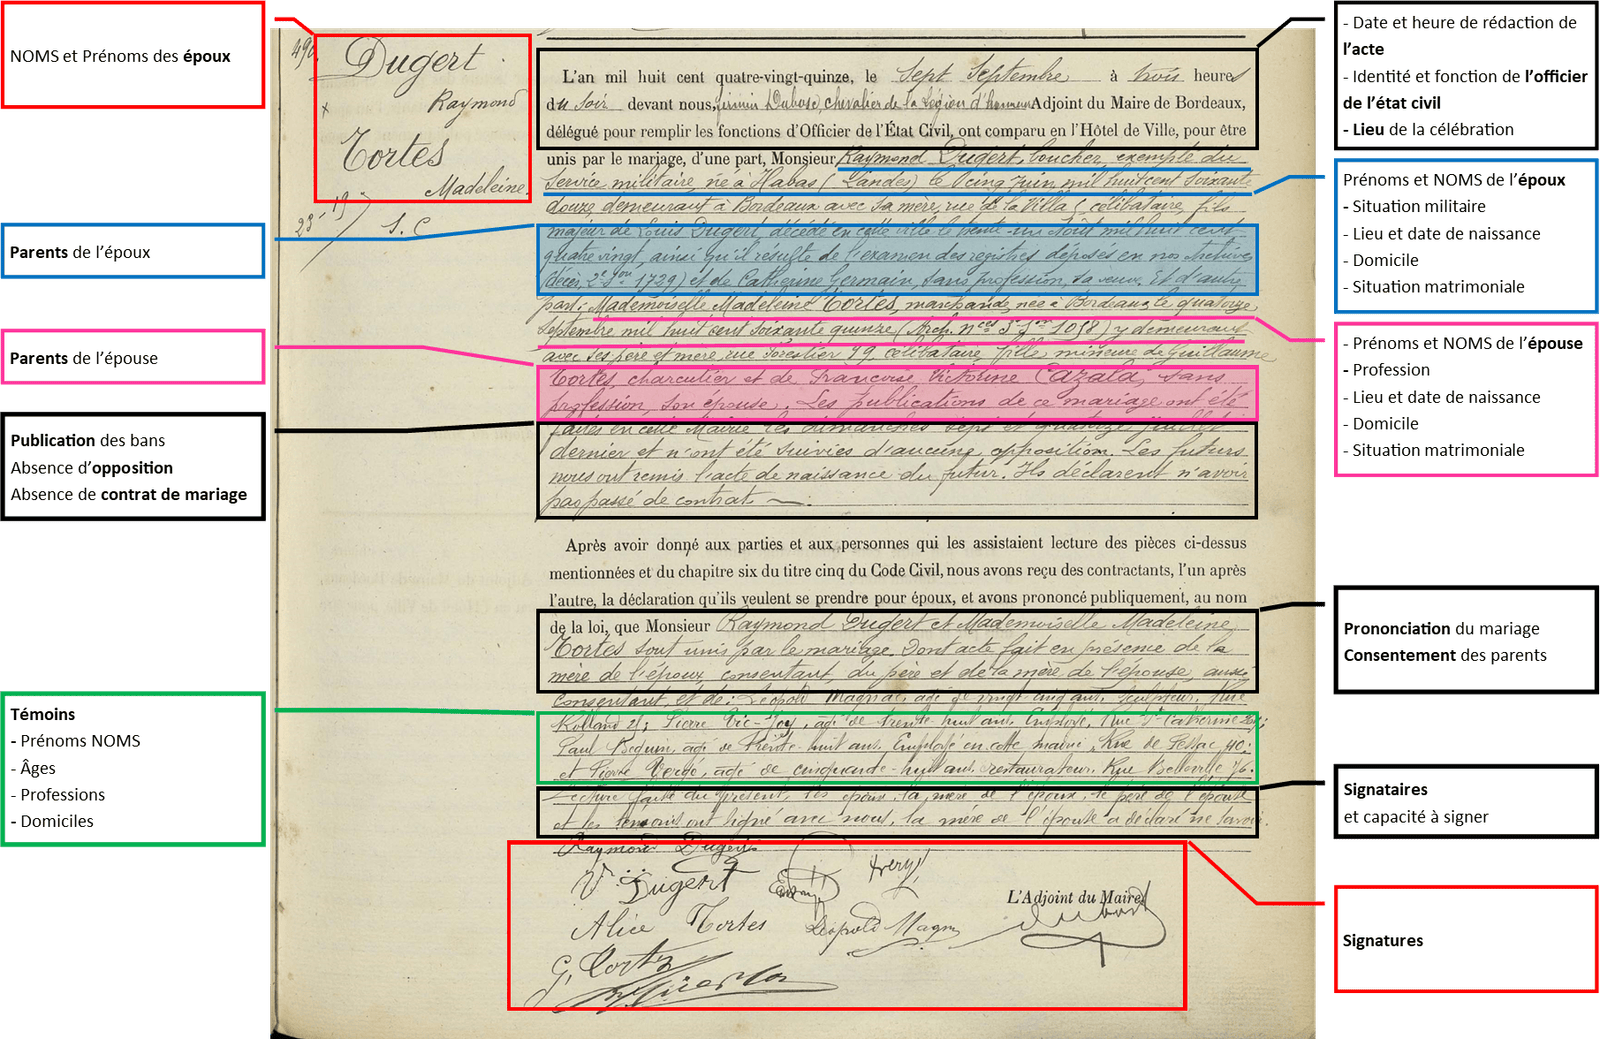 NOMS et Prénoms des époux
Parents de l'époux
Parents de l'épouse
Publication des bans
Absence d'opposition
Absence de contrat de mariage
Témoins
- Prénoms NOMS
- Âges
- Professions
- Domiciles
490
Dugert
Raymond
Tortes
Madeleine
S. C
L'an mil huit cent quatre-vingt-quinze, le Sept Septembre à trois heures
du soir devant nous, Firmin Dubosc, chevalier de la Légion d'honneur Adjoint du Maire de Bordeaux,
délégué pour remplir les fonctions d'Officier de l'État Civil, ont comparu en l'Hôtel de Ville, pour être
unis par le mariage, d'une part, Monsieur Raymond Dugert, boucher, exempté du
Service militaire, né à Habas (Landes) le cinq juin mil huit cent soixante
douze, demeurant à Bordeaux avec sa mère, rue de la Villa 6, célibataire, fils
majeur de Louis Dugert décédé en cette ville le trente un Août mil huit cent
quatre vingt, ainsi qu'il résulte de l'examen des registres déposés en nos Archives
(décès, 2e Son 1729) et de Catherine Germain, sans profession, sa veuve. Et d'autre
part: Mademoiselle Madeleine Tortes, marchande, née à Bordeaux, le quatorze
Septembre mil huit cent soixante quinze (Arch. nces 3e 1058) y demeurant
avec ses père et mère, rue Forestier 49 célibataire, fille mineure de Guillaume
Tortes charcutier et de Françoise Victorine Cazala, sans
profession, son épouse. Les publications de ce mariage ont été
faites en cette Mairie les dimanches sept et quatorze juillet
dernier et n'ont été suivies d'aucune opposition. Les futurs
nous ont remis l'acte de naissance du futur. Ils déclarent n'avoir
pas passé de contrat.
Après avoir donné aux parties et aux personnes qui les assistaient lecture des pièces ci-dessus
mentionnées et du chapitre six du titre cinq du Code Civil, nous avons reçu des contractants, l'un après
l'autre, la déclaration qu'ils veulent se prendre pour époux, et avons prononcé publiquement, au nom
de la loi, que Monsieur Raymond Dugert et Mademoiselle Madeleine
Tortes sont unis par le mariage. Dont acte fait en présence de la
mère de l'époux, consentant, du père et de la mère de l'épouse, aussi
consentant, et de: Léopold âgé de vingt cinq ans, Sculpteur, Rue
Rolland 21; Pierre âgé de trente-huit ans, Employé, Rue Ste Catherine
Paul Béguin, âgé de trente-huit ans, Employé en cette mairie, Rue de Pessac, 40;
et Pierre Vergé, âgé de cinquante-huit ans, restaurateur, Rue Belleville 76.
Lecture faite du présent, les époux, la mère de l'époux, le père de l'épouse
et les témoins ont signé avec nous, la mère de l'épouse a déclaré ne savoir.
Raymond Dugert
V. Dugert
Alice Tortes
Léopold
G. Tortes
L'Adjoint du Maire,
- Date et heure de rédaction de
l'acte
- Identité et fonction de l'officier
de l'état civil
- Lieu de la célébration
Prénoms et NOMS de l'époux
- Situation militaire
- Lieu et date de naissance
- Domicile
- Situation matrimoniale
- Prénoms et NOMS de l'épouse
- Profession
- Lieu et date de naissance
- Domicile
- Situation matrimoniale
Prononciation du mariage
Consentement des parents
Signataires
et capacité à signer
Signatures